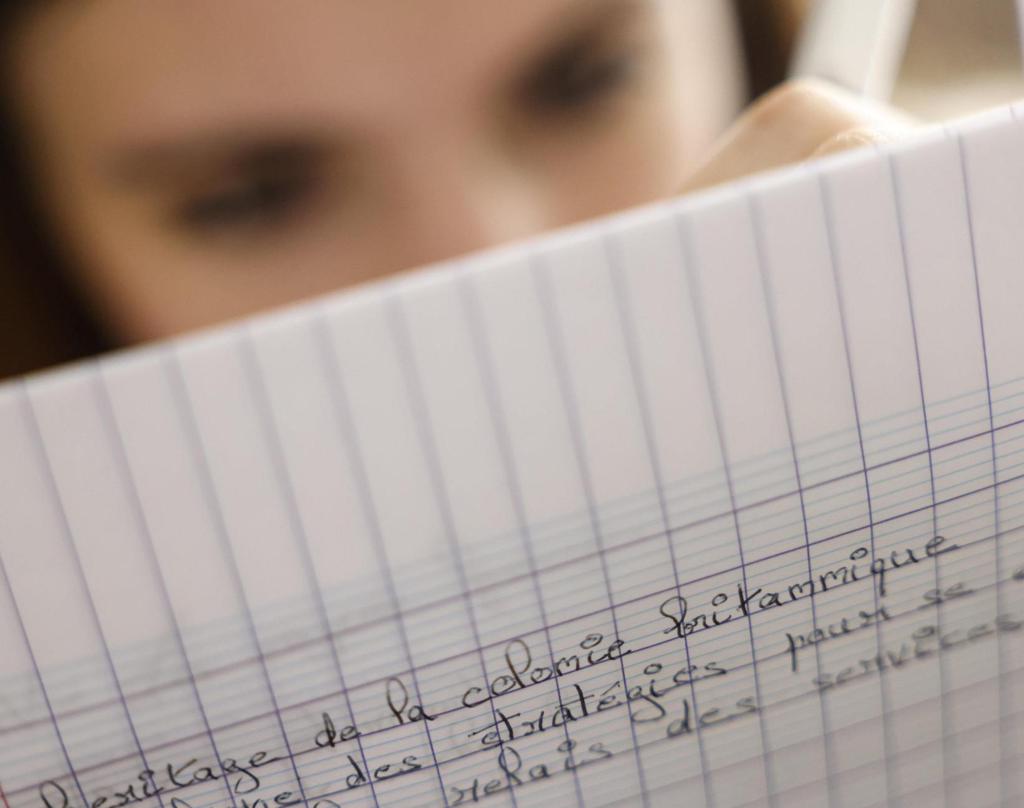 heritage de la colonie britannique
des stratégies pour se
relais des services